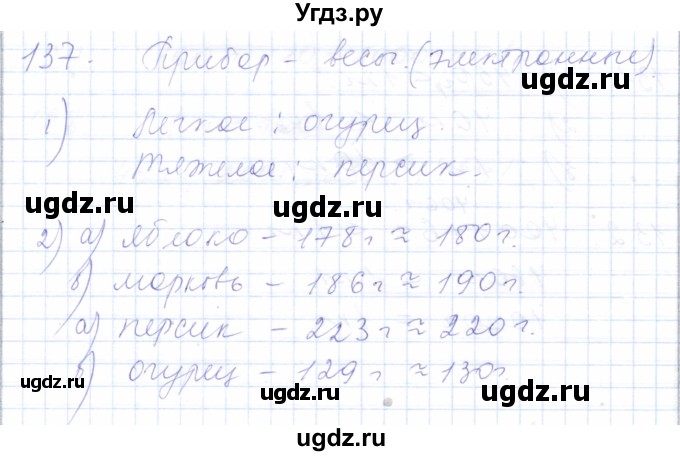 Угдз.ру
137. Прибор – весы. (электронные).
ugdz.ru
1) Легкое: огурец.
ugdz.ru
Тяжелое: персик.
ugdz.ru ugdz.ru
2) а) яблоко – 178 г ≈ 180 г.
ugdz.ru
б) морковь – 186 г ≈ 190 г.
ugdz.ru
а) персик – 223 г ≈ 220 г.
ugdz.ru
б) огурец – 129 г ≈ 130 г
ugdz.ru ugdz.ru
ugdz.ru
ugdz.ru